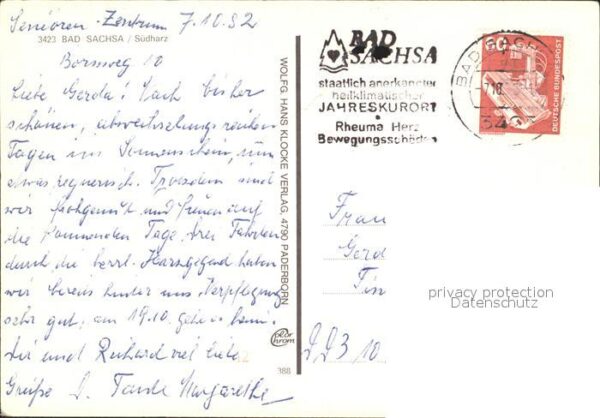 Senioren-Zentrum 7.10.82
3423 BAD SACHSA / Südharz
Bornweg 10
Liebe Gerda! Nach bisher
schönen, abwechselungsreichen
Tagen im Sonnenschein, nun
etwas regnerisch. Trotzdem sind
wir frohgemut und freuen auf
die kommenden Tage, drei Fahrten
durch die herrl. Harzgegend haben
wir bereits hinter uns. Verpflegung
sehr gut, am 19.10. geht es heim.
Dir und Richard viel liebe
Grüße D. Tante Margarethe
WOLFG. HANS KLOCKE VERLAG, 4790 PADERBORN
color
chrom
388
BAD
SACHSA
staatlich anerkannter
heilklimatischer
JAHRESKURORT
Rheuma Herz
Bewegungsschäden
BAD SACHSA
60
DEUTSCHE BUNDESPOST
Frau
Gerd
Tin
privacy protection
Datenschutz
DD3 10